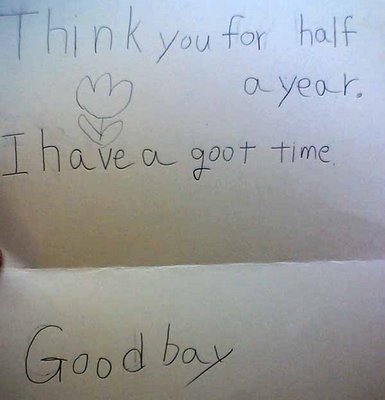 Think you for half
a year.
I have a goot time.
Good bay